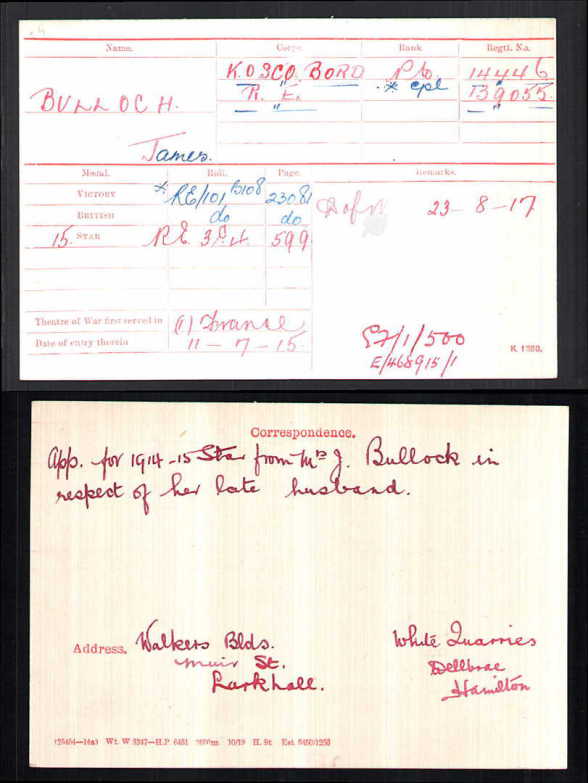 Name. Corps. Rank Regtl. No.
K.O SCO. BORD Pte 14446
BULLOCH. R. E. * Cpl 139055
" " "
James.
Medal. Roll. Page. Remarks.
VICTORY * RE/101 B108 23081 D of W 23-8-17
BRITISH do do
15 STAR RE 599
Theatre of War first served in (1) France
Date of entry therein 11-7-15
/1/500
E/468915/1
K. 1380.
Correspondence.
App. for 1914-15 Star from Mrs J. Bullock in
respect of her late husband.
Address. Walkers Blds. White Quarries
Muir St. Dellbrae
Larkhall. Hamilton
Wt. W 5347—H.P. 10/19 H. St